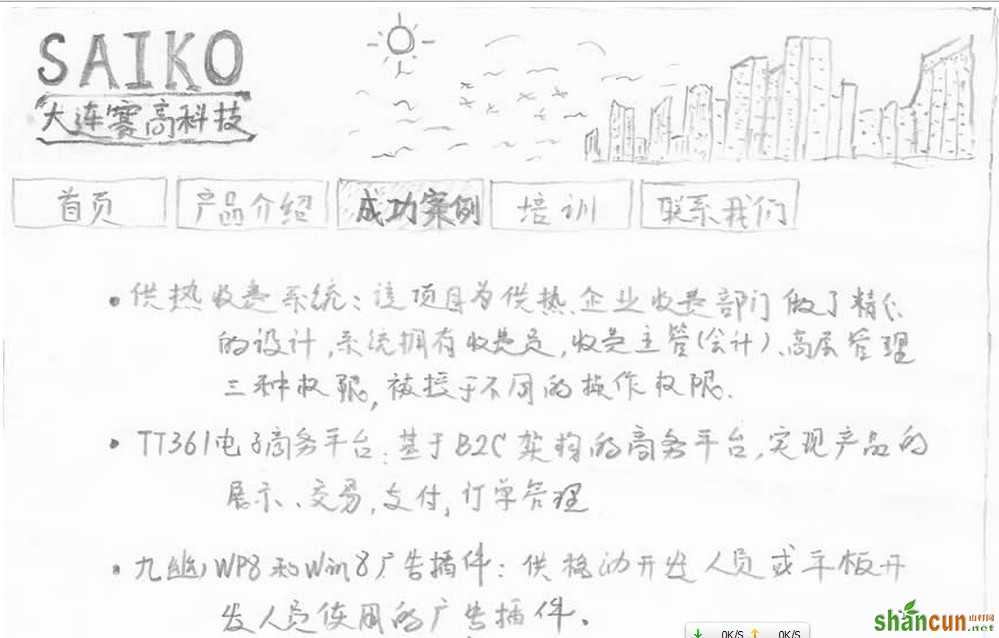 SAIKO
大连赛高科技
首页 产品介绍 成功案例 培训 联系我们
• 供热收费系统：该项目为供热企业收费部门做了精化
的设计,系统拥有收费员,收费主管(会计)、高层管理
三种权限,被授于不同的操作权限.
• TT361电子商务平台:基于B2C架构的商务平台,实现产品的
展示、交易,支付,订单管理
• 九幽WP8和Win8广告插件：供移动开发人员或平板开
发人员使用的广告插件.
0K/S 0K/S
shancun 山村网
.net